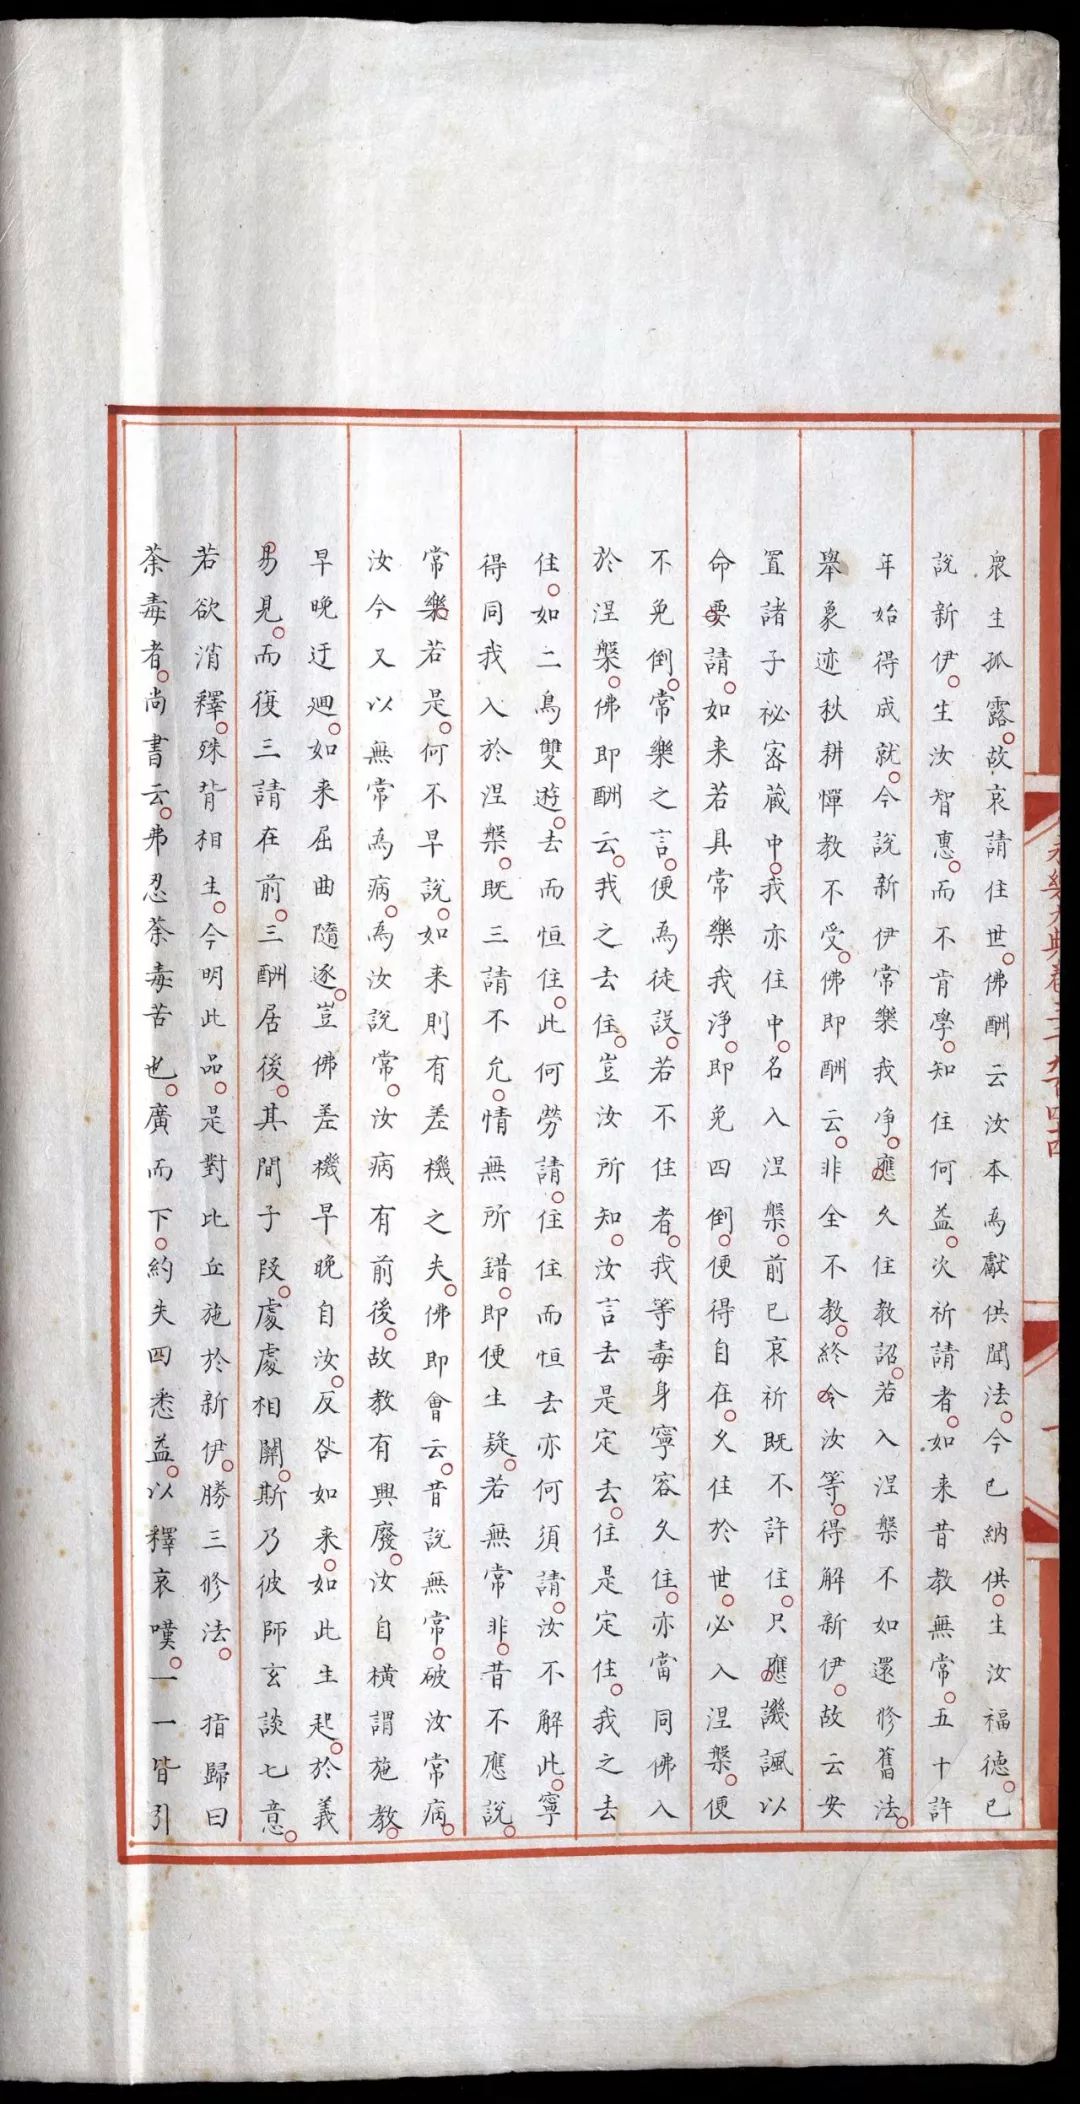 衆生孤露。故哀請住世。佛酬云汝本為獻供聞法。今已納供。生汝福德。已
說新伊。生汝智惠。而不肯學。知住何益。次祈請者。如来昔教無常。五十許
年始得成就。今說新伊常樂我净。應久住教詔。若入涅槃不如還修舊法。
舉象迹秋耕憚教不受。佛即酬云。非全不教。終令汝等。得解新伊。故云安
置諸子祕宻蔵中。我亦住中。名入涅槃。前已哀祈既不許住。只應譏諷以
命要請。如来若具常樂我淨。即免四倒。便得自在。久住於世。必入涅槃。便
不免倒。常樂之言。便為徒設。若不住者。我等毒身寧容久住。亦當同佛入
於涅槃。佛即酬云。我之去住。豈汝所知。汝言去是定去。住是定住。我之去
住。如二鳥雙遊。去而恒住。此何勞請。住住而恒去亦何須請。汝不解此。寧
得同我入於涅槃。既三請不允。情無所錯。即便生疑。若無常非。昔不應說。
常樂若是。何不早說。如来則有差機之失。佛即會云。昔說無常。破汝常病。
汝今又以無常為病。為汝說常。汝病有前後。故教有興廢。汝自橫謂施教。
早晚迂廻。如来屈曲隨逐。豈佛差機早晚自汝。反咎如来。如此生起。於義
易見。而復三請在前。三酬居後。其間子段。處處相關。斯乃彼師玄談七意。
若欲消釋。殊背相生。今明此品。是對比丘施於新伊。勝三修法。 指歸曰
荼毒者。尚書云。弗忍荼毒苦也。廣而下。約失四悉益。以釋哀嘆。一一皆引
永樂大典卷三千九百四